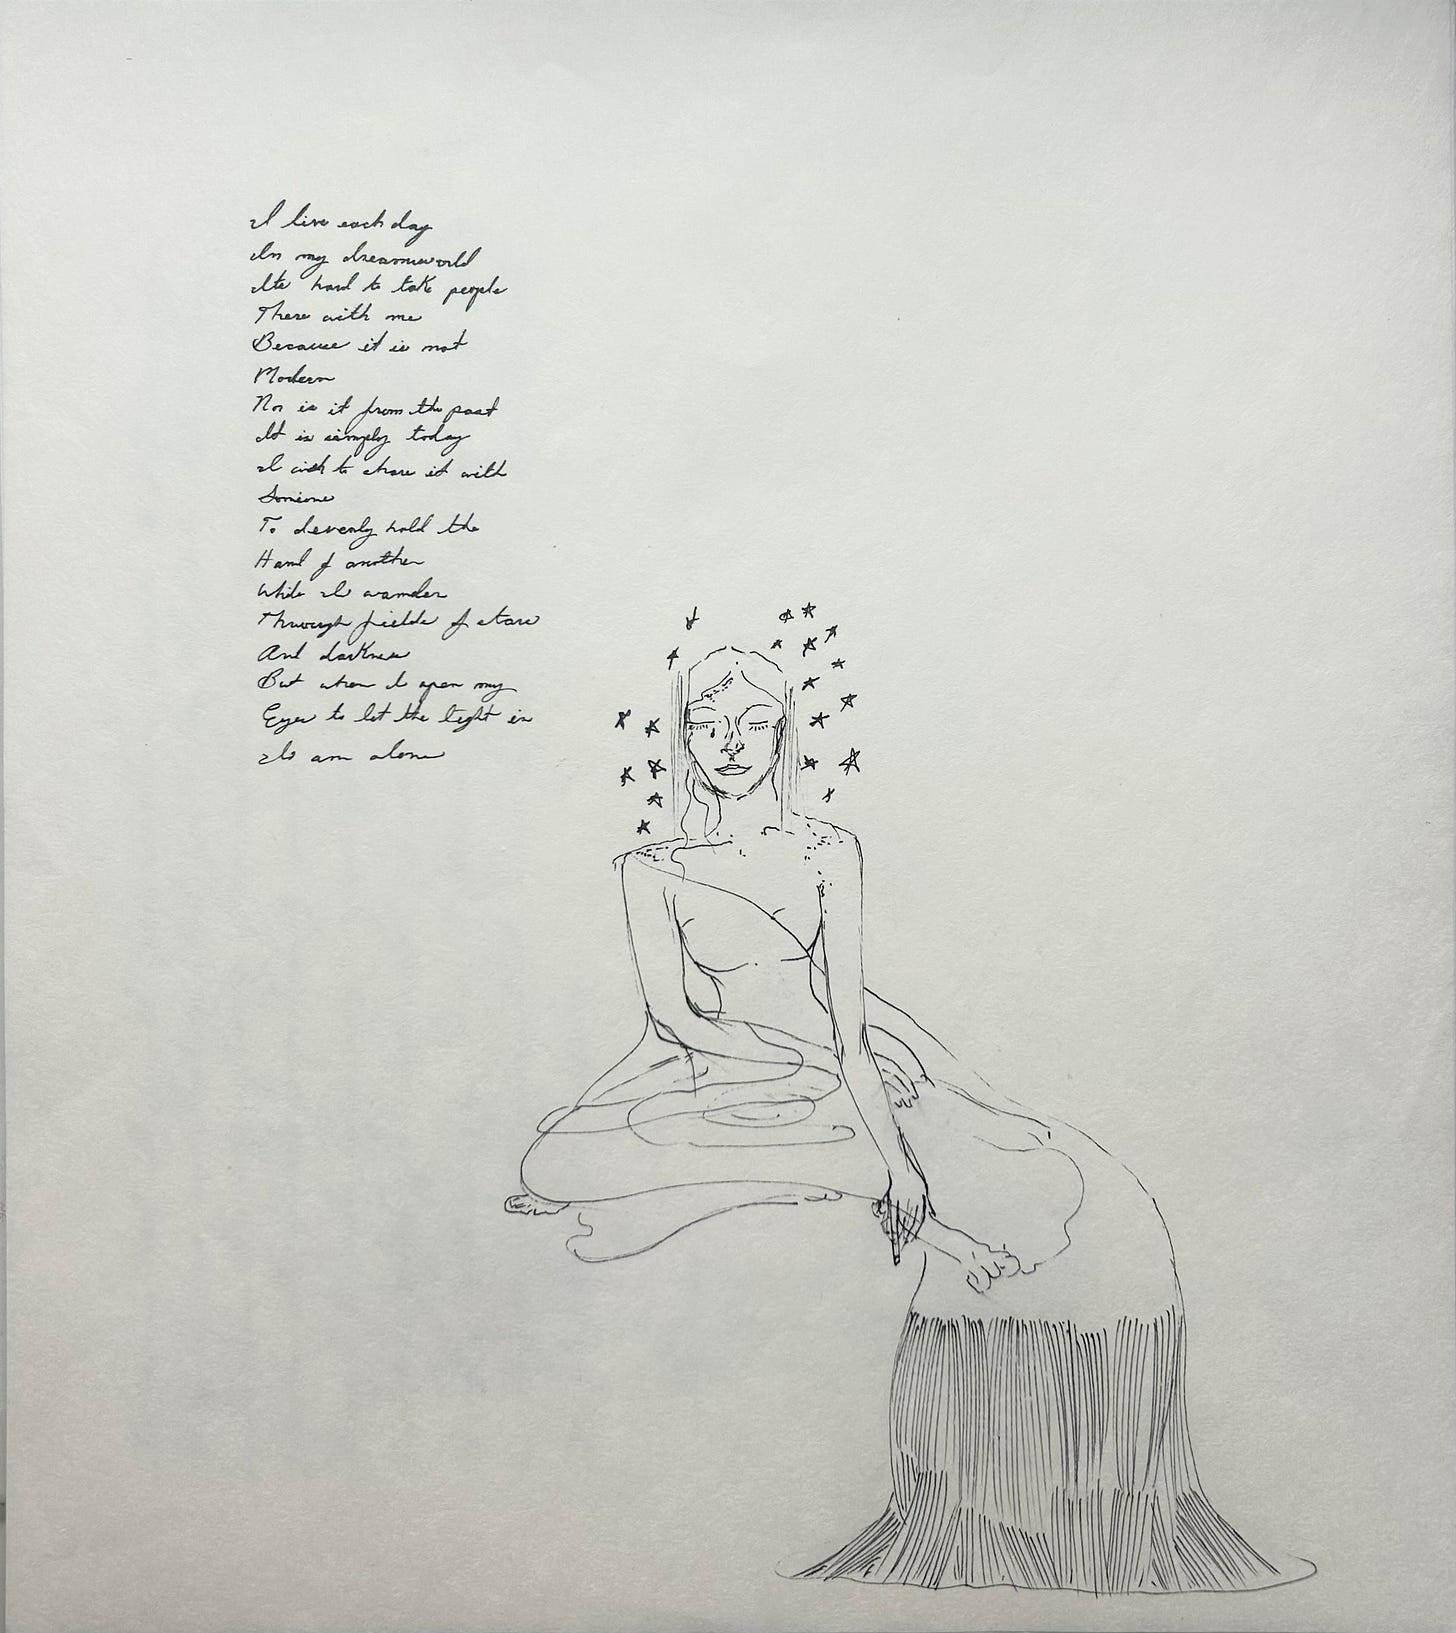 I live each day
In my dreamworld
Its hard to take people
There with me
Because it is not
Modern
Nor is it from the past
It is simply today
I wish to share it with
Someone
To hold the
Hand of another
While I wander
Through fields of stars
And darkness
But when I open my
Eyes to let the light in
I am alone